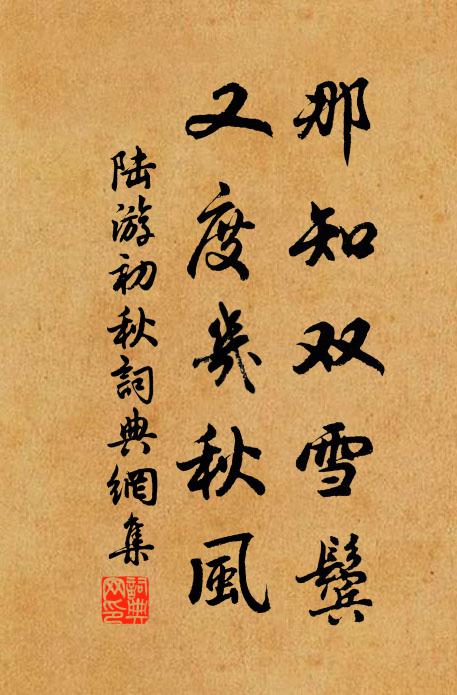 那知双雪鬓
又度几秋風
陆游初秋詞典網集
詞典網印